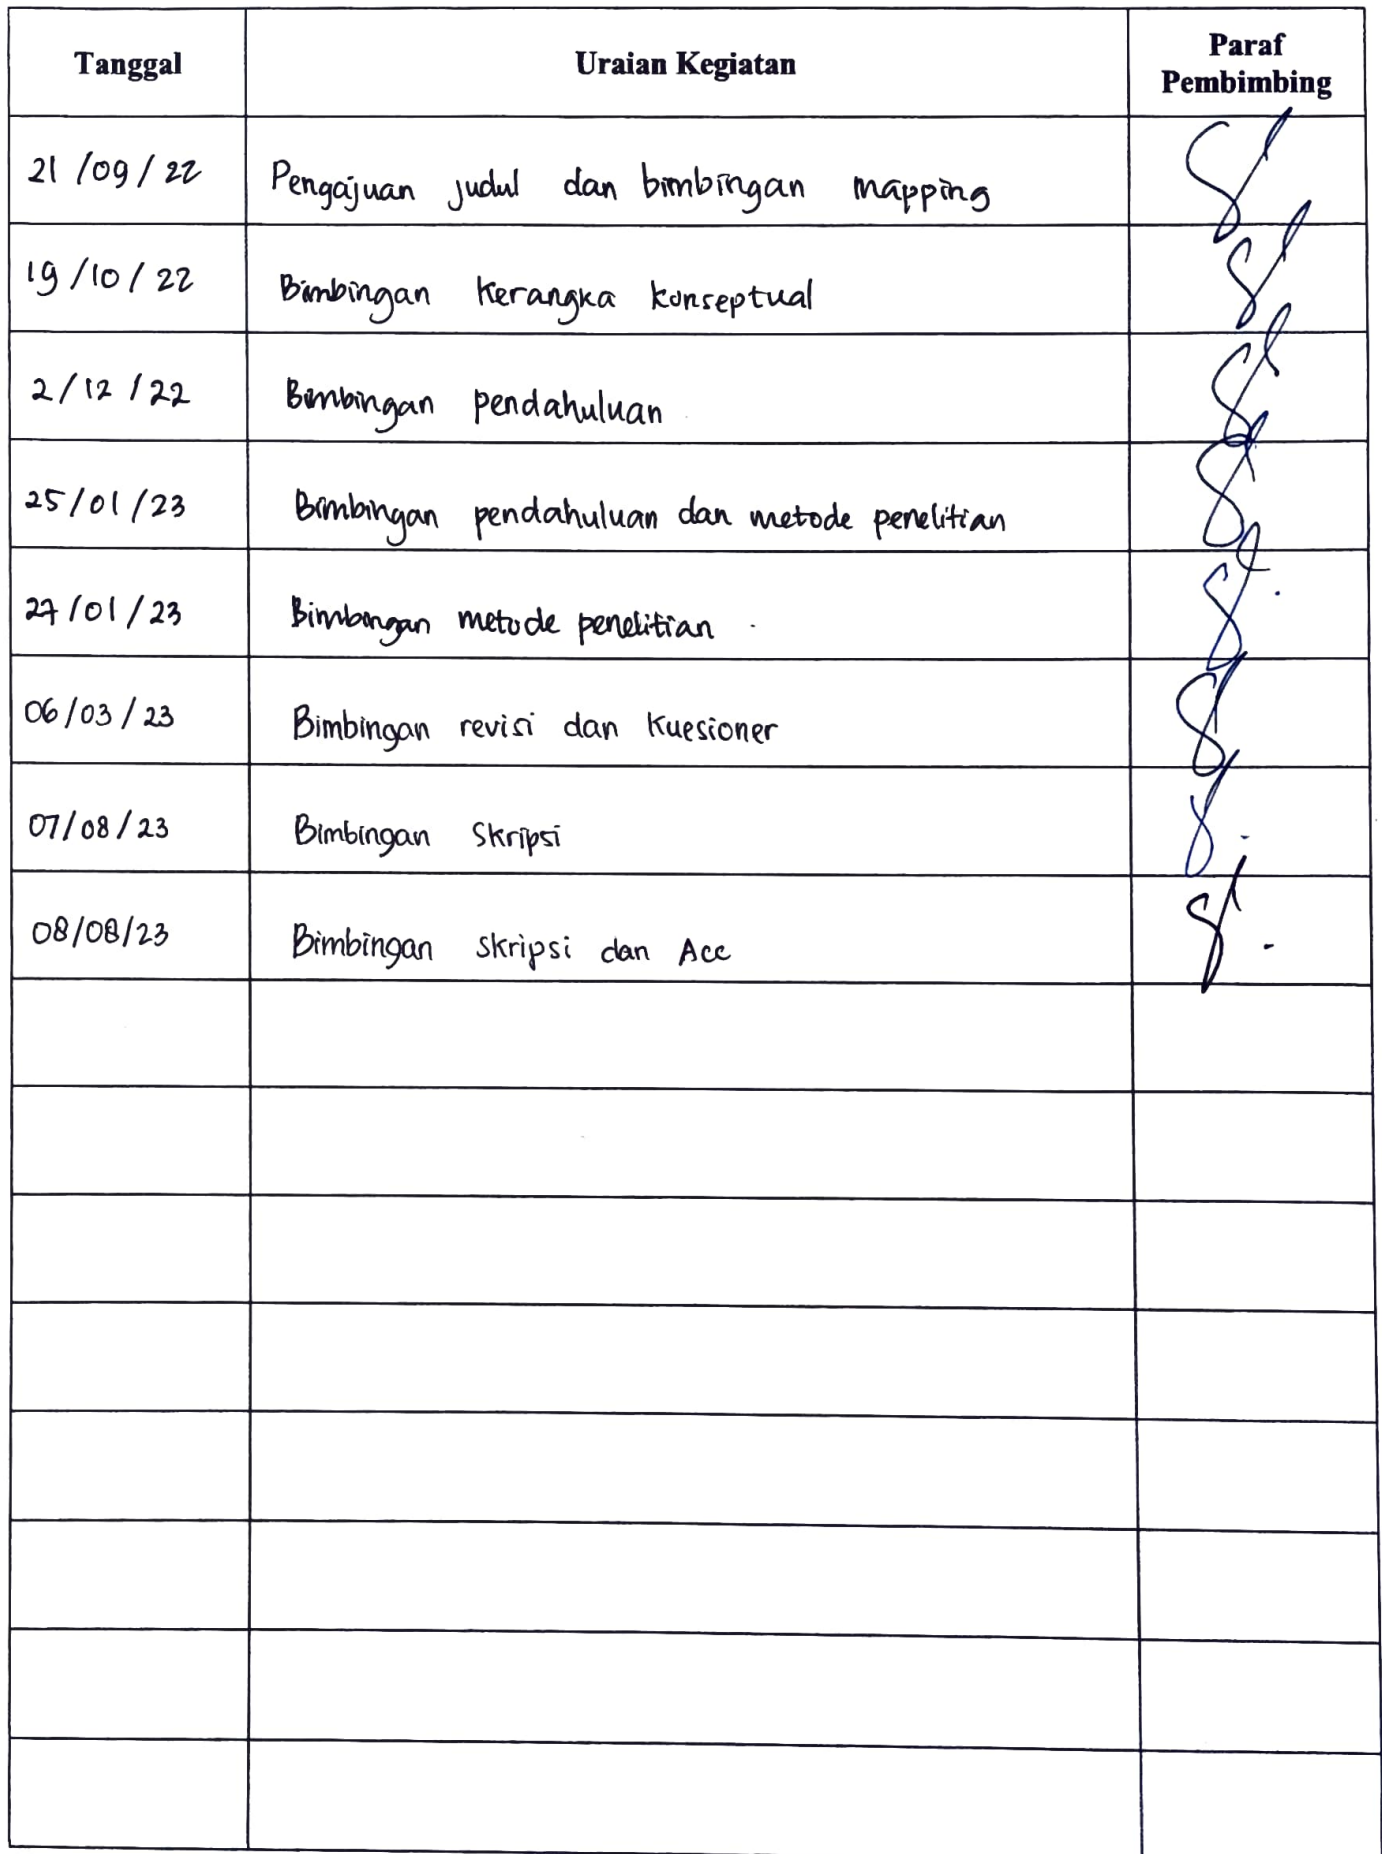 Tanggal Uraian Kegiatan Paraf Pembimbing
21/09/22 Pengajuan judul dan bimbingan mapping
19/10/22 Bimbingan Kerangka konseptual
2/12/22 Bimbingan pendahuluan
25/01/23 Bimbingan pendahuluan dan metode penelitian
27/01/23 Bimbingan metode penelitian
06/03/23 Bimbingan revisi dan Kuesioner
07/08/23 Bimbingan Skripsi
08/08/23 Bimbingan skripsi dan Acc